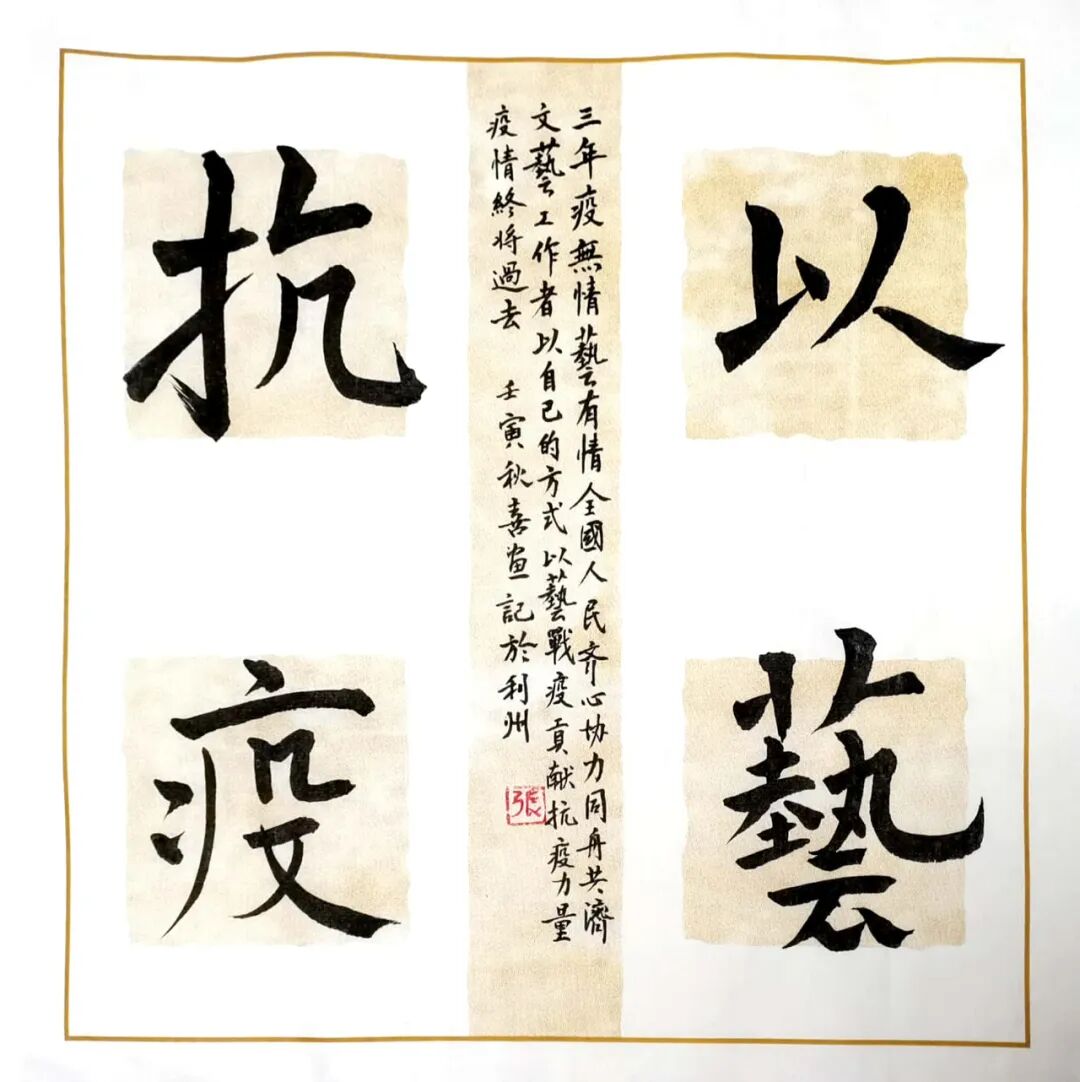 以藝
三年疫無情藝有情全國人民齐心协力同舟共濟
文藝工作者以自己的方式以藝戰疫貢献抗疫力量
疫情終将過去 壬寅秋喜画記於利州
張
抗疫